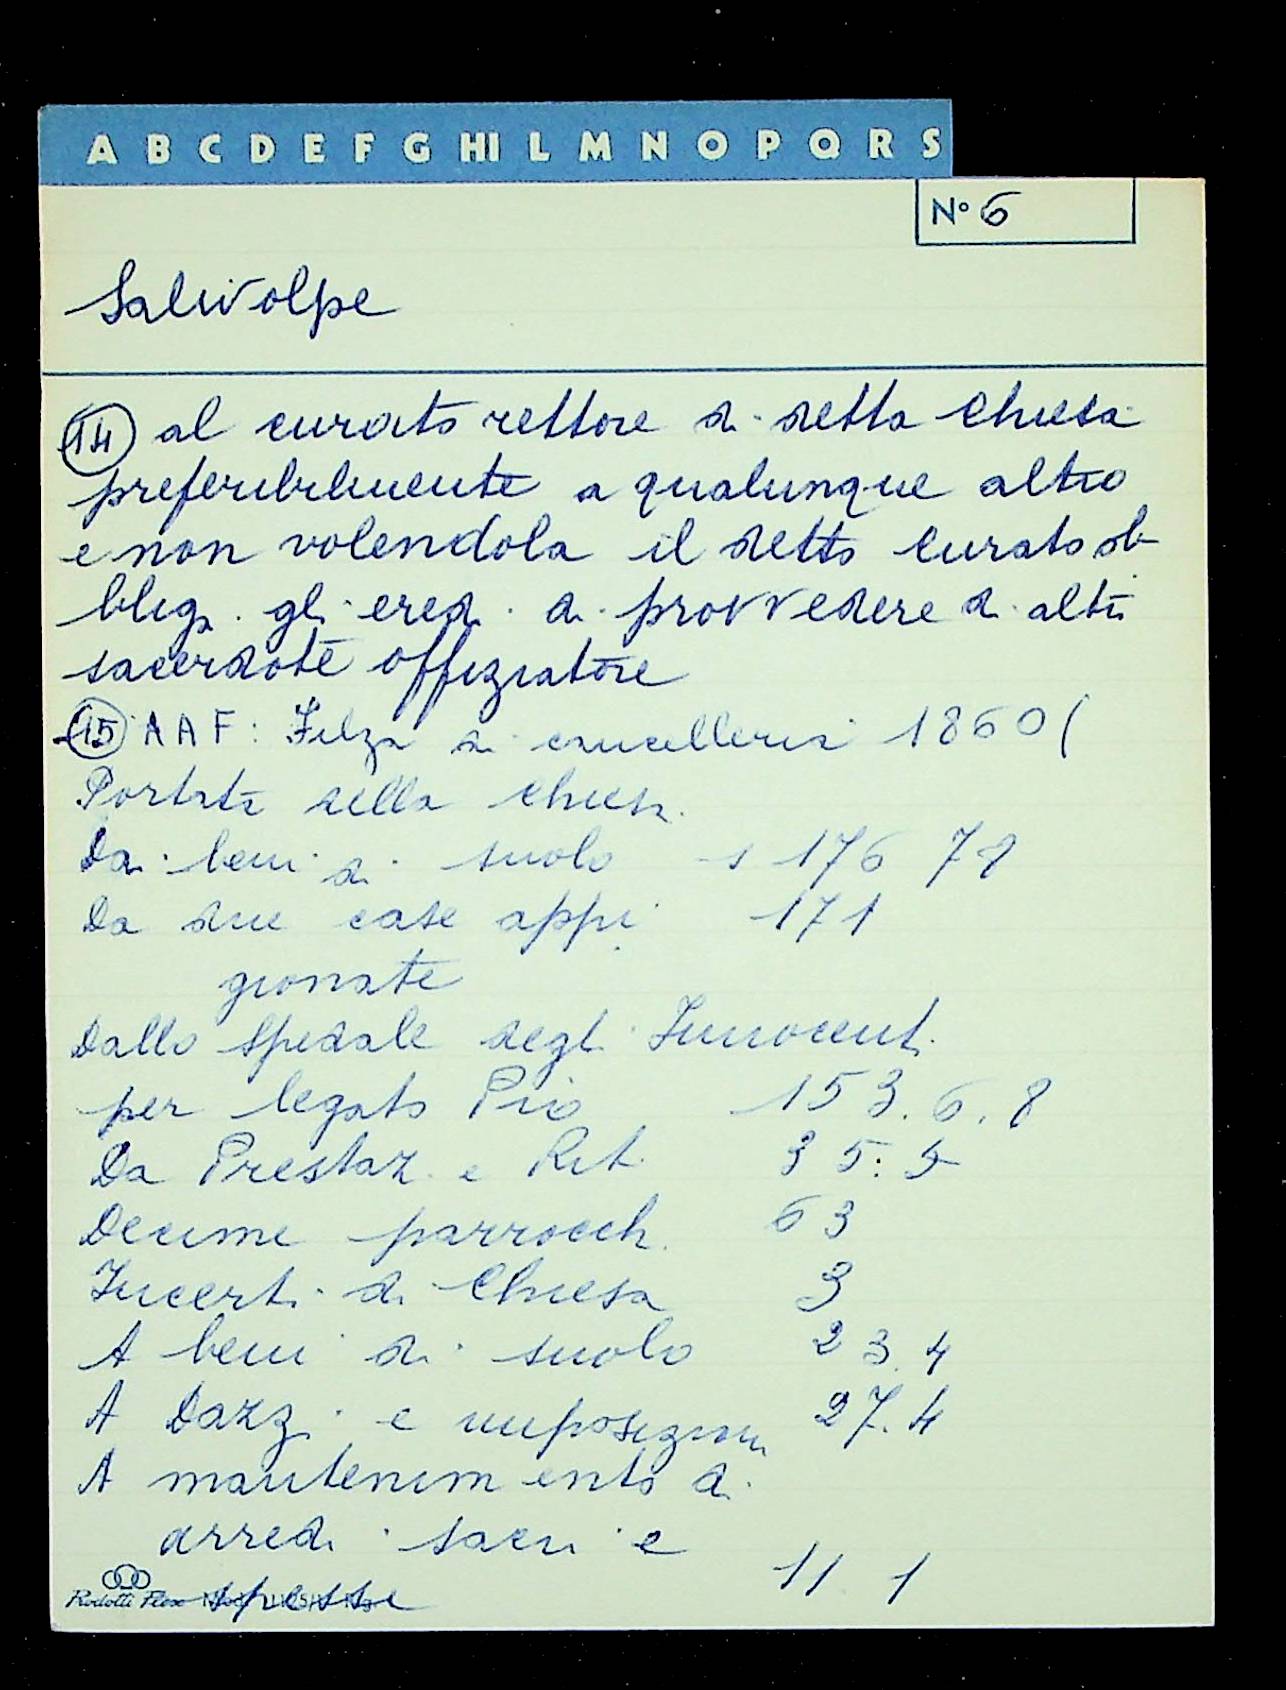 A B C D E F G HI L M N O P Q R S
N° 6
Salivolpe
14 al curato rettore di detta Chiesa
preferibilmente a qualunque altro
e non volendola il detto Curato ob
bliga gli eredi a provvedere di altri
sacerdote offiziatore
15 AAF: Filza di cancelleria 1860 (
Portate della Chiesa
Da beni di suolo s 176 7 8
Da due case appi 171
gionate
Dallo Spedale degli Innocenti
per legato Pio 153. 6. 8
Da Prestaz. e Rit. 35: 5
Decime parrocch. 63
Incerti di Chiesa 3
A beni di suolo 23. 4
A Dazzi e imposizioni 27. 4
A mantenimento di
arredi sacri e
spesse 11 1
Rodotti Flex